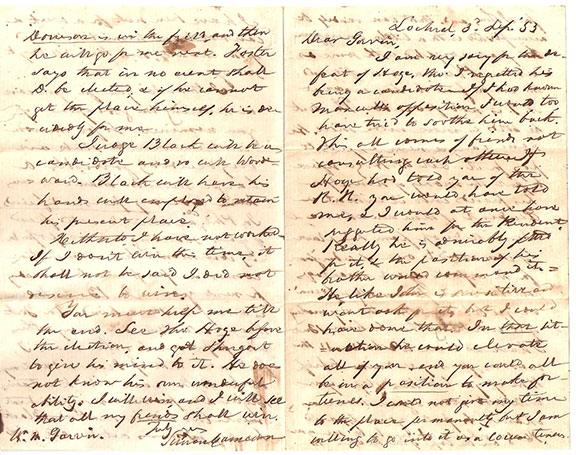 Lochiel 3d Sep. 53
Dear Garvin,
I am very sorry for the de-
feat of Hoge, tho' I regretted his
being a candidate. If I had known
have tried to soothe him back.
This all comes of friends not
consulting each other. If
Hoge had told you of the
R. R. you would have told
me, & I would at once have
him for the President
Really he is admirably
for it & the position of his
brother would command it =
He like John is sensitive and
want ask for it, but I could
have done that. In that sit-
uation he could elevate
all of you and you could all
be in a position to make for-
tunes. I could not give my time
to the place permanently but I am
willing to go into it as a
is in the field and then
he will go for me next. Foster
says that in no event shall
D. be elected, & if he cannot
get the place himself, he is de-
cidedly for me.
Judge Black will be a
candidate and so will Wood-
ward. Black will have his
hands well employed to retain
his present place.
Hitherto I have not worked.
If I don't win this time it
shall not be said I did not
desire to win.
You must help me till
the end. See Tho Hoge before
the election, and get
to give his mind to it. He does
not know his own wonderful
ability. I will win and I will see
that all my friends shall win.
truly yrs
Simon Cameron
W. M. Garvin.